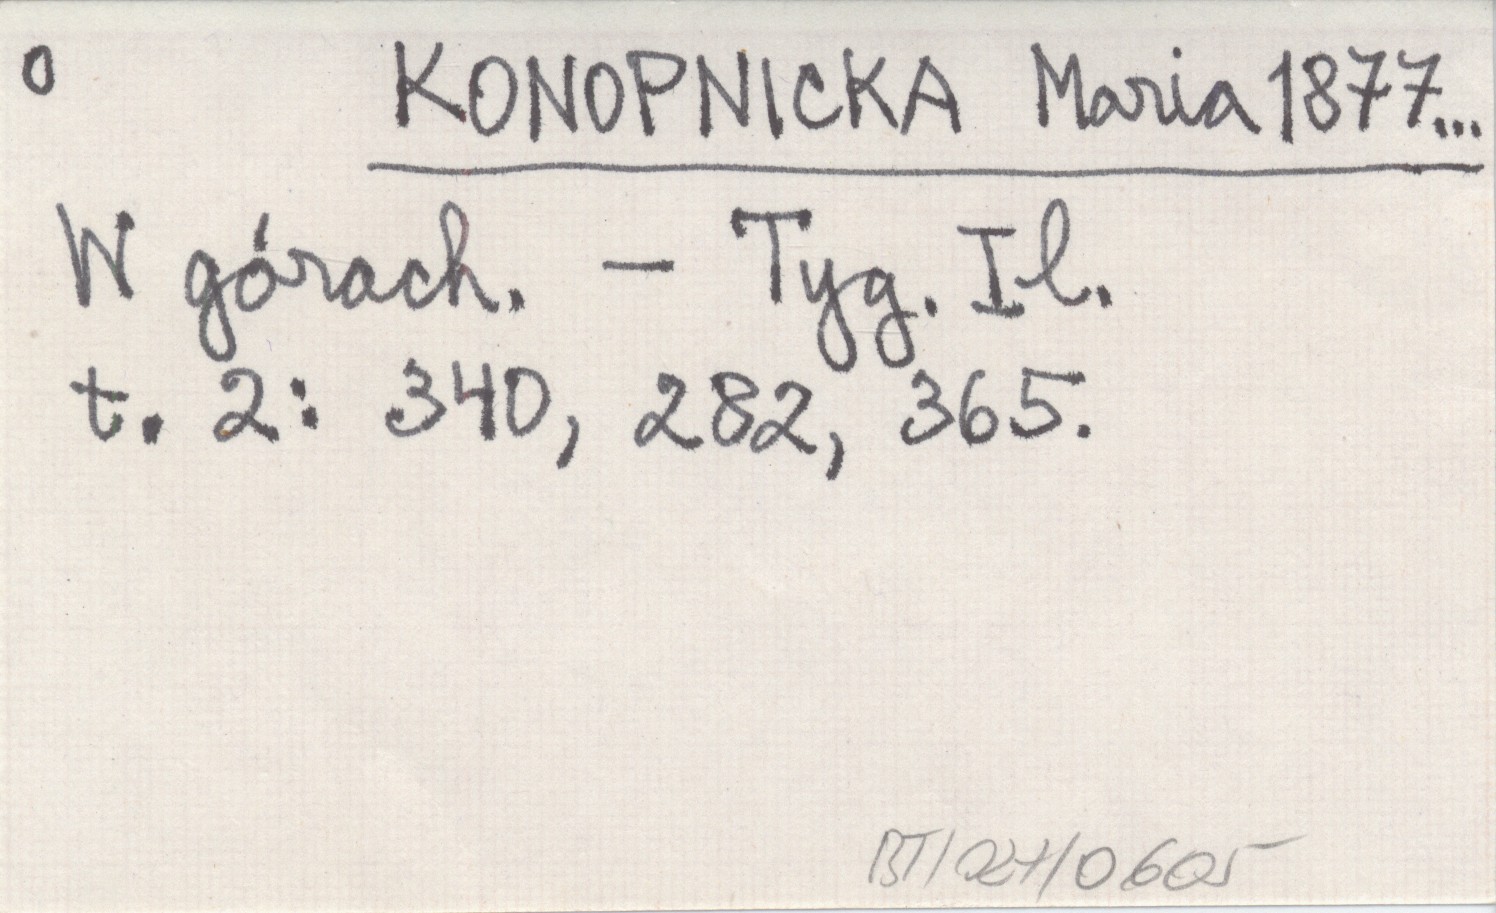 0 KONOPNICKA Maria 1877...
W górach. – Tyg. Il.
t. 2: 340, 282, 365.
BT/027/0605